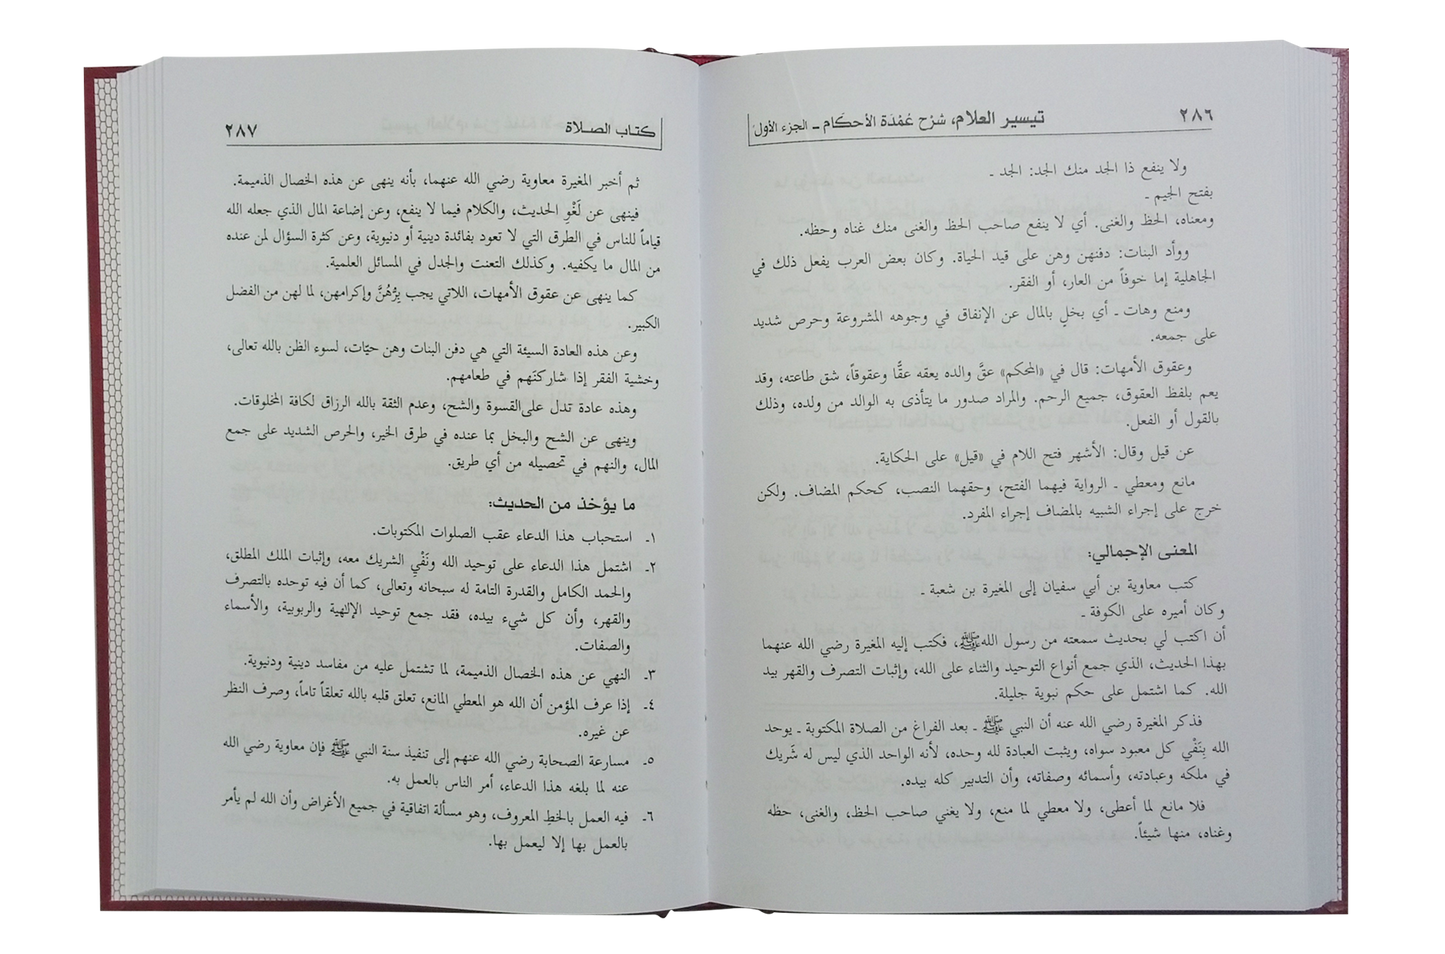 ٢٨٦
تيسير العلام، شرح عمدة الأحكام ـ الجزء الأول
ولا ينفع ذا الجد منك الجد: الجد ـ
بفتح الجيم ـ
ومعناه، الحظ والغنى. أي لا ينفع صاحب الحظ والغنى منك غناه وحظه.
ووأد البنات: دفنهن وهن على قيد الحياة. وكان بعض العرب يفعل ذلك في
الجاهلية إما خوفاً من العار، أو الفقر.
ومنع وهات ـ أي بخل بالمال عن الإنفاق في وجوهه المشروعة وحرص شديد
على جمعه.
وعقوق الأمهات: قال في «المحكم» عقَّ والده يعقه عقًّا وعقوقاً، شق طاعته، وقد
يعم بلفظ العقوق، جميع الرحم. والمراد صدور ما يتأذى به الوالد من ولده، وذلك
بالقول أو الفعل.
عن قيل وقال: الأشهر فتح اللام في «قيل» على الحكاية.
مانع ومعطي ـ الرواية فيهما الفتح، وحقهما النصب، كحكم المضاف. ولكن
خرج على إجراء الشبيه بالمضاف إجراء المفرد.
المعنى الإجمالي:
كتب معاوية بن أبي سفيان إلى المغيرة بن شعبة ـ
وكان أميره على الكوفة ـ
أن اكتب لي بحديث سمعته من رسول الله ﷺ، فكتب إليه المغيرة رضي الله عنهما
بهذا الحديث، الذي جمع أنواع التوحيد والثناء على الله، وإثبات التصرف والقهر بيد
الله. كما اشتمل على حكم نبوية جليلة.
فذكر المغيرة رضي الله عنه أن النبي ﷺ ـ بعد الفراغ من الصلاة المكتوبة ـ يوحد
الله بِنَفْي كل معبود سواه، ويثبت العبادة لله وحده، لأنه الواحد الذي ليس له شَريك
في ملكه وعبادته، وأسمائه وصفاته، وأن التدبير كله بيده.
فلا مانع لما أعطى، ولا معطي لما منع، ولا يغني صاحب الحظ، والغنى، حظه
وغناه، منها شيئاً.
كتاب الصلاة
٢٨٧
ثم أخبر المغيرة معاوية رضي الله عنهما، بأنه ينهى عن هذه الخصال الذميمة.
فينهى عن لَغْوِ الحديث، والكلام فيما لا ينفع، وعن إضاعة المال الذي جعله الله
قياماً للناس في الطرق التي لا تعود بفائدة دينية أو دنيوية، وعن كثرة السؤال لمن عنده
من المال ما يكفيه. وكذلك التعنت والجدل في المسائل العلمية.
كما ينهى عن عقوق الأمهات، اللاتي يجب بِرُّهُنَّ وإكرامهن، لما لهن من الفضل
الكبير.
وعن هذه العادة السيئة التي هي دفن البنات وهن حيّات، لسوء الظن بالله تعالى،
وخشية الفقر إذا شاركتهم في طعامهم.
وهذه عادة تدل على القسوة والشح، وعدم الثقة بالله الرزاق لكافة المخلوقات.
وينهى عن الشح والبخل بما عنده في طرق الخير، والحرص الشديد على جمع
المال، والنهم في تحصيله من أي طريق.
ما يؤخذ من الحديث:
١ـ استحباب هذا الدعاء عقب الصلوات المكتوبات.
٢ـ اشتمل هذا الدعاء على توحيد الله ونَفْيِ الشريك معه، وإثبات الملك المطلق،
والحمد الكامل والقدرة التامة له سبحانه وتعالى، كما أن فيه توحده بالتصرف
والقهر، وأن كل شيء بيده، فقد جمع توحيد الإلهية والربوبية، والأسماء
والصفات.
٣ـ النهي عن هذه الخصال الذميمة، لما تشتمل عليه من مفاسد دينية ودنيوية.
٤ـ إذا عرف المؤمن أن الله هو المعطي المانع، تعلق قلبه بالله تعلقاً تاماً، وصرف النظر
عن غيره.
٥ـ مسارعة الصحابة رضي الله عنهم إلى تنفيذ سنة النبي ﷺ فإن معاوية رضي الله
عنه لما بلغه هذا الدعاء، أمر الناس بالعمل به.
٦ـ فيه العمل بالخط المعروف، وهو مسألة اتفاقية في جميع الأغراض وأن الله لم يأمر
بالعمل بها إلا ليعمل بها.